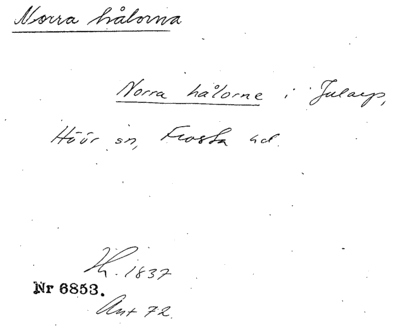 Norra hålorna
Norra hålorne i Jularp,
Höör sn, Frosta hd.
H. 1837
Nr 6853.
Ant 72.